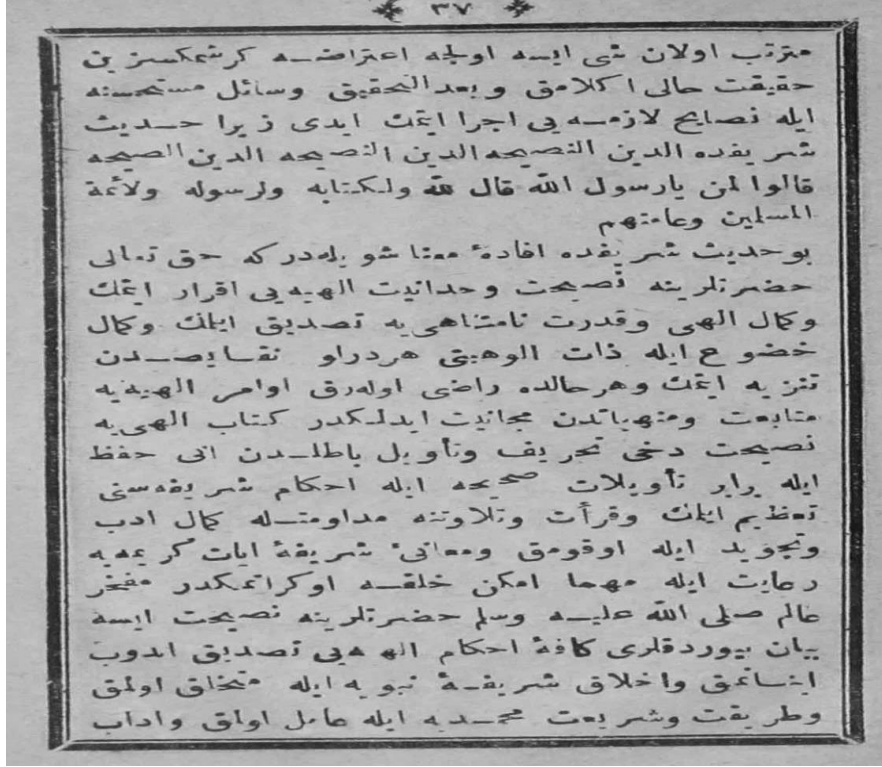 ٣٧
مترتب اولان شی ایسه اولجه اعتراضـه کرشمکسزین
حقیقت حالی اکلامق و بعد التحقیق وسائل مستحسنه
ایله نصایح لازمـه یی اجرا ایتمك ایدی زیرا حـدیث
شریفده الدین النصیحه الدین النصیحه الدین النصیحه
قالوا لمن یارسول الله قال لله ولکتابه ولرسوله ولائمة
المسلمین وعامتهم
بو حدیث شریفده افادهٔ معنا شویله‌در که حق تعالی
حضرتلرینه نصیحت وحدانیت الهیه یی اقرار ایتمك
وکمال الهی وقدرت نامتناهی یه تصدیق ایلمك وکمال
خضوع ایله ذات الوهیتی هردرلو نقـایصـدن
تنزیه ایتمك وهر حالده راضی اوله‌رق اوامر الهیه‌یه
متابعت ومنهیاتدن مجانبت ایدلمکدر کتاب الهی یه
نصیحت دخی تحریف وتأویل باطلـدن انی حفظ
ایله برابر تأویلات صحیحه ایله احکام شریفه‌سنی
تعظیم ایلمك وقرأت وتلاوتنه مداومتـله کمال ادب
وتجوید ایله اوقومق ومعانیٔ شریفهٔ ایات کریمه‌یه
رعایت ایله مهما امکن خلقـه اوکراتمکدر مفخر
عالم صلی الله علیـه وسلم حضرتلرینه نصیحت ایسه
بیان بیوردقلری کافهٔ احکام الهیه‌یی تصدیق ایدوب
اینـانمق واخلاق شریفـهٔ نبویه ایله متخلق اولمق
وطریقت وشریعت محمـدیه ایله عامل اولمق واداب